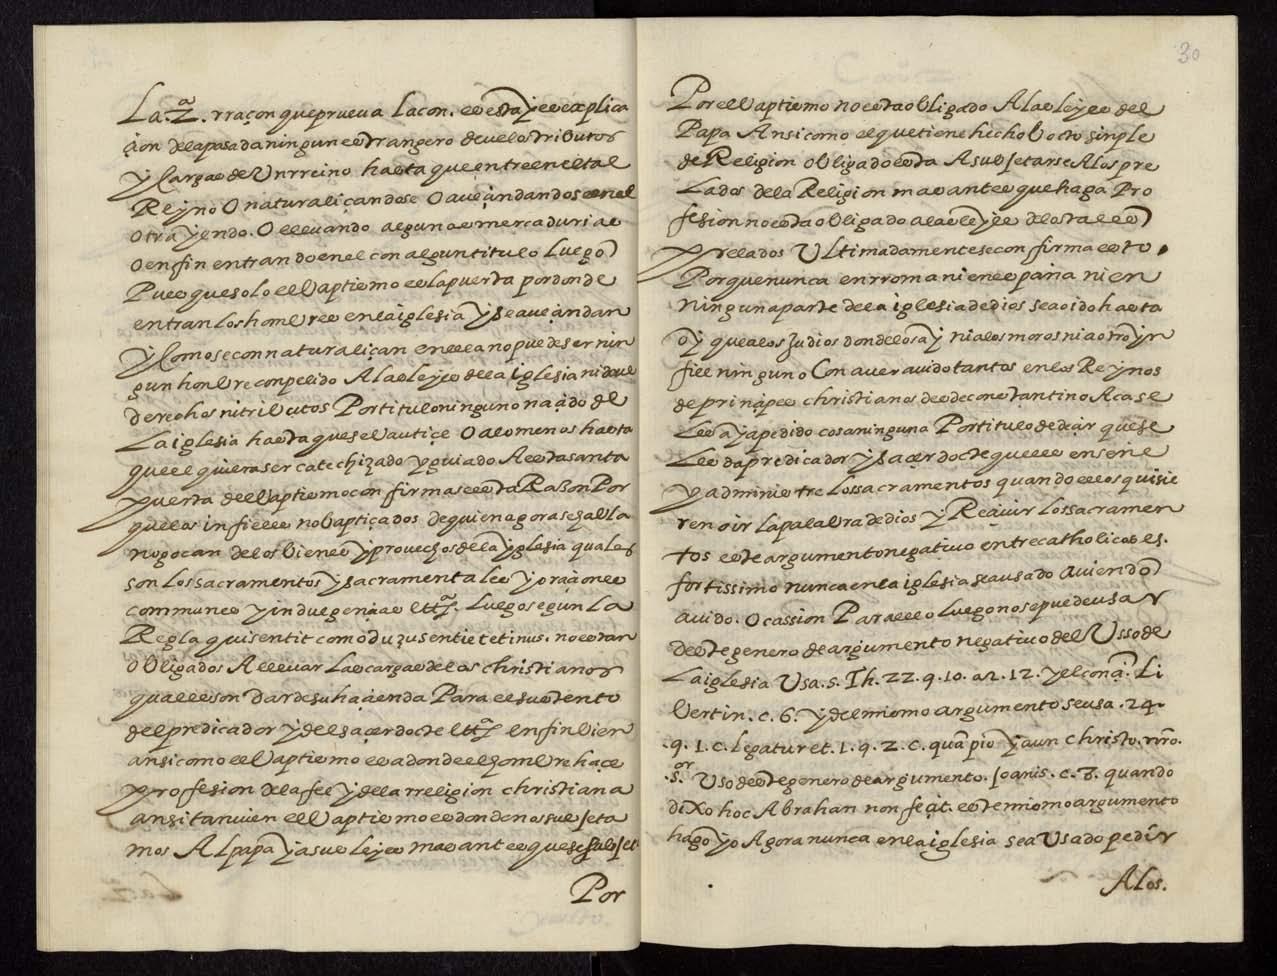 La. 2ª. rraçon que prueva la con. es esta y es explica
çion de la pasada ningun estrangero deve los tributos
y cargas de un rreino hasta que entre en el tal
Reyno O naturaliçandose O aveçindandose en el
otra yendo. O llevando algunas mercadurias
o en fin entrando en el con algun titulo Luego
Pues que solo el baptismo es la puerta por donde
entran los hombres en la iglesia y se aveçindan
y Como se connaturaliçan en ella no puede ser nin
gun honbre conpelido A las leyes de la iglesia ni deve
derechos ni tributos Por titulo ninguno naçido de
La iglesia hasta que se bautiçe O a lo menos hasta
que el quiera ser catechizado y guiado A esta santa
puerta del baptismo confirmase esta Razon Por
que los infieles no baptiçados de quien agora se habla
no goçan de los bienes y provechos de la yglesia quales
son Los sacramentos y sacramentales y oraçiones
communes y indulgençias etta. Luego segun La
Regla qui sentit comōdū zu sentie tetinus. no estan
obligados A llevar Las cargas de los christianos
quales son Dar de su haçienda Para el sustento
del predicador y del saçerdocte etta. en fin bien
ansi como el baptismo es a donde el hombre haçe
profesion de la fee y de la rreligion christiana
ansi tanvien el baptismo es donde nos subjeta
mos Al papa y a sus leyes mas antes que se subjet
Por
30
Por el baptismo no esta obligado A las leyes del
Papa Ansi como el que tiene hecho bocto sinple
de Religion obligado esta A subjetarse A los pre
Lados de la Religion mas antes que haga Pro
fesion no esta obligado a las leyes de los tales
prelados Ultimadamente se confirma esto.
Porque nunca en rroma ni en españa ni en
ninguna parte de la iglesia de dios se a oido hasta
oy que a los Judios donde los ay ni a los moros ni a otro yn
fiel ninguno Con aver avido tantos en los Reynos
de prinçipes christianos desde constantino Aca se
Les aya pedido cosa ninguna Por titulo de deçir que se
Les da predicador y saçerdocte que les enseñe
y administre Los sacramentos quando ellos quisie
ren oir la palabra de dios y Reçivir Los sacramen
tos este argumento negativo entre catholicos es.
fortissimo nunca en la iglesia se a usado aviendo
avido. Ocassion Para ello luego no se puede usar
deste genero de argumento negativo del Usso de
La iglesia Usa. s. Th. 22. q. 10. ar. 12. y el conçi. Li
bertin. c. 6. y del mismo argumento se usa. 24.
.q. 1. c. legatur et. 1. q. 2. c. quā pio y aun christo. nrō.
.sor. Uso deste genero de argumento. Joanis. c. 8. quando
dixo hoc Abrahan non feçit. este mismo argumento
hago yo Agora nunca en la iglesia se a Usado pedir
A los.